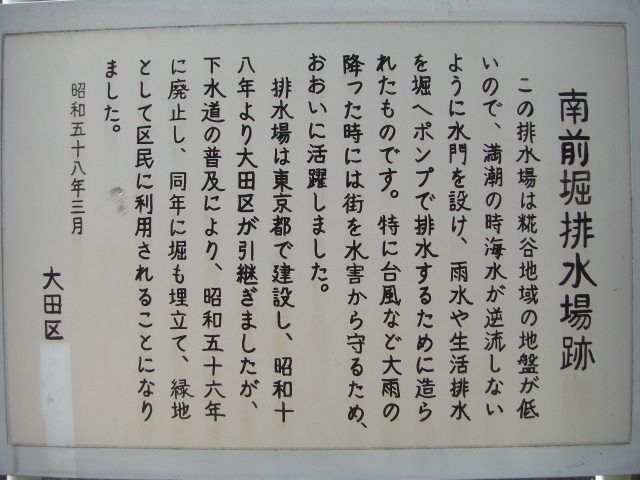 南前堀排水場跡
この排水場は糀谷地域の地盤が低
いので、満潮の時海水が逆流しない
ように水門を設け、雨水や生活排水
を堀へポンプで排水するために造ら
れたものです。特に台風など大雨の
降った時には街を水害から守るため、
おおいに活躍しました。
排水場は東京都で建設し、昭和十
八年より大田区が引継ぎましたが、
下水道の普及により、昭和五十六年
に廃止し、同年に堀も埋立て、緑地
として区民に利用されることになり
ました。
昭和五十八年三月
大田区